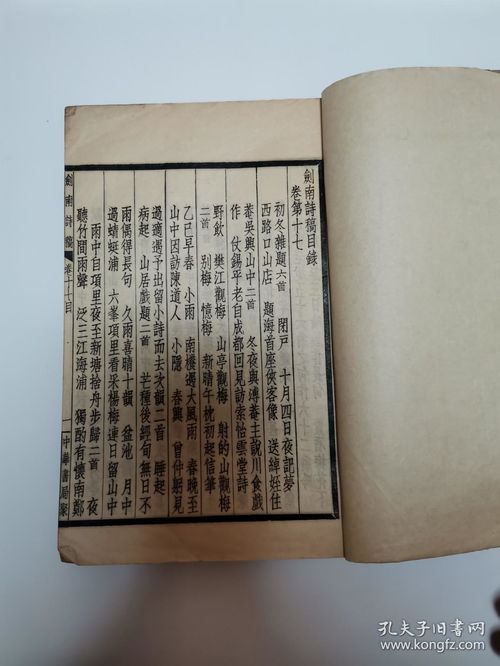 劍南詩稿目錄
卷第十七
初冬雜題六首 閉戸 十月四日夜記夢
西路口山店 題海首座俠客像 送綽姪住
菴吳興山中二首 冬夜與溥菴主說川食戲
作 仗錫平老自成都回見訪索怡雲堂詩
野飲 樊江觀梅 山亭觀梅 射的山觀梅
二首 别梅 憶梅 新晴 午枕初起信筆
乙巳早春 小雨 南樓遇大風雨 春晚至
山中因訪陳道人 小隱 春興 曾仲躬見
過適遇予出留小詩而去次韻二首 睡起
病起 山居戲題二首 芒種後經旬無日不
雨偶得長句 久雨喜晴十韻 盆池 月中
過蜻蜓浦 六峯項里看采楊梅連日留山中
雨中自項里夜至新塘捨舟步歸二首 夜
聽竹間雨聲 泛三江海浦 獨酌有懷南鄭
劍南詩稿 卷十七目
中華書局聚
孔夫子旧书网
www.kongfz.com